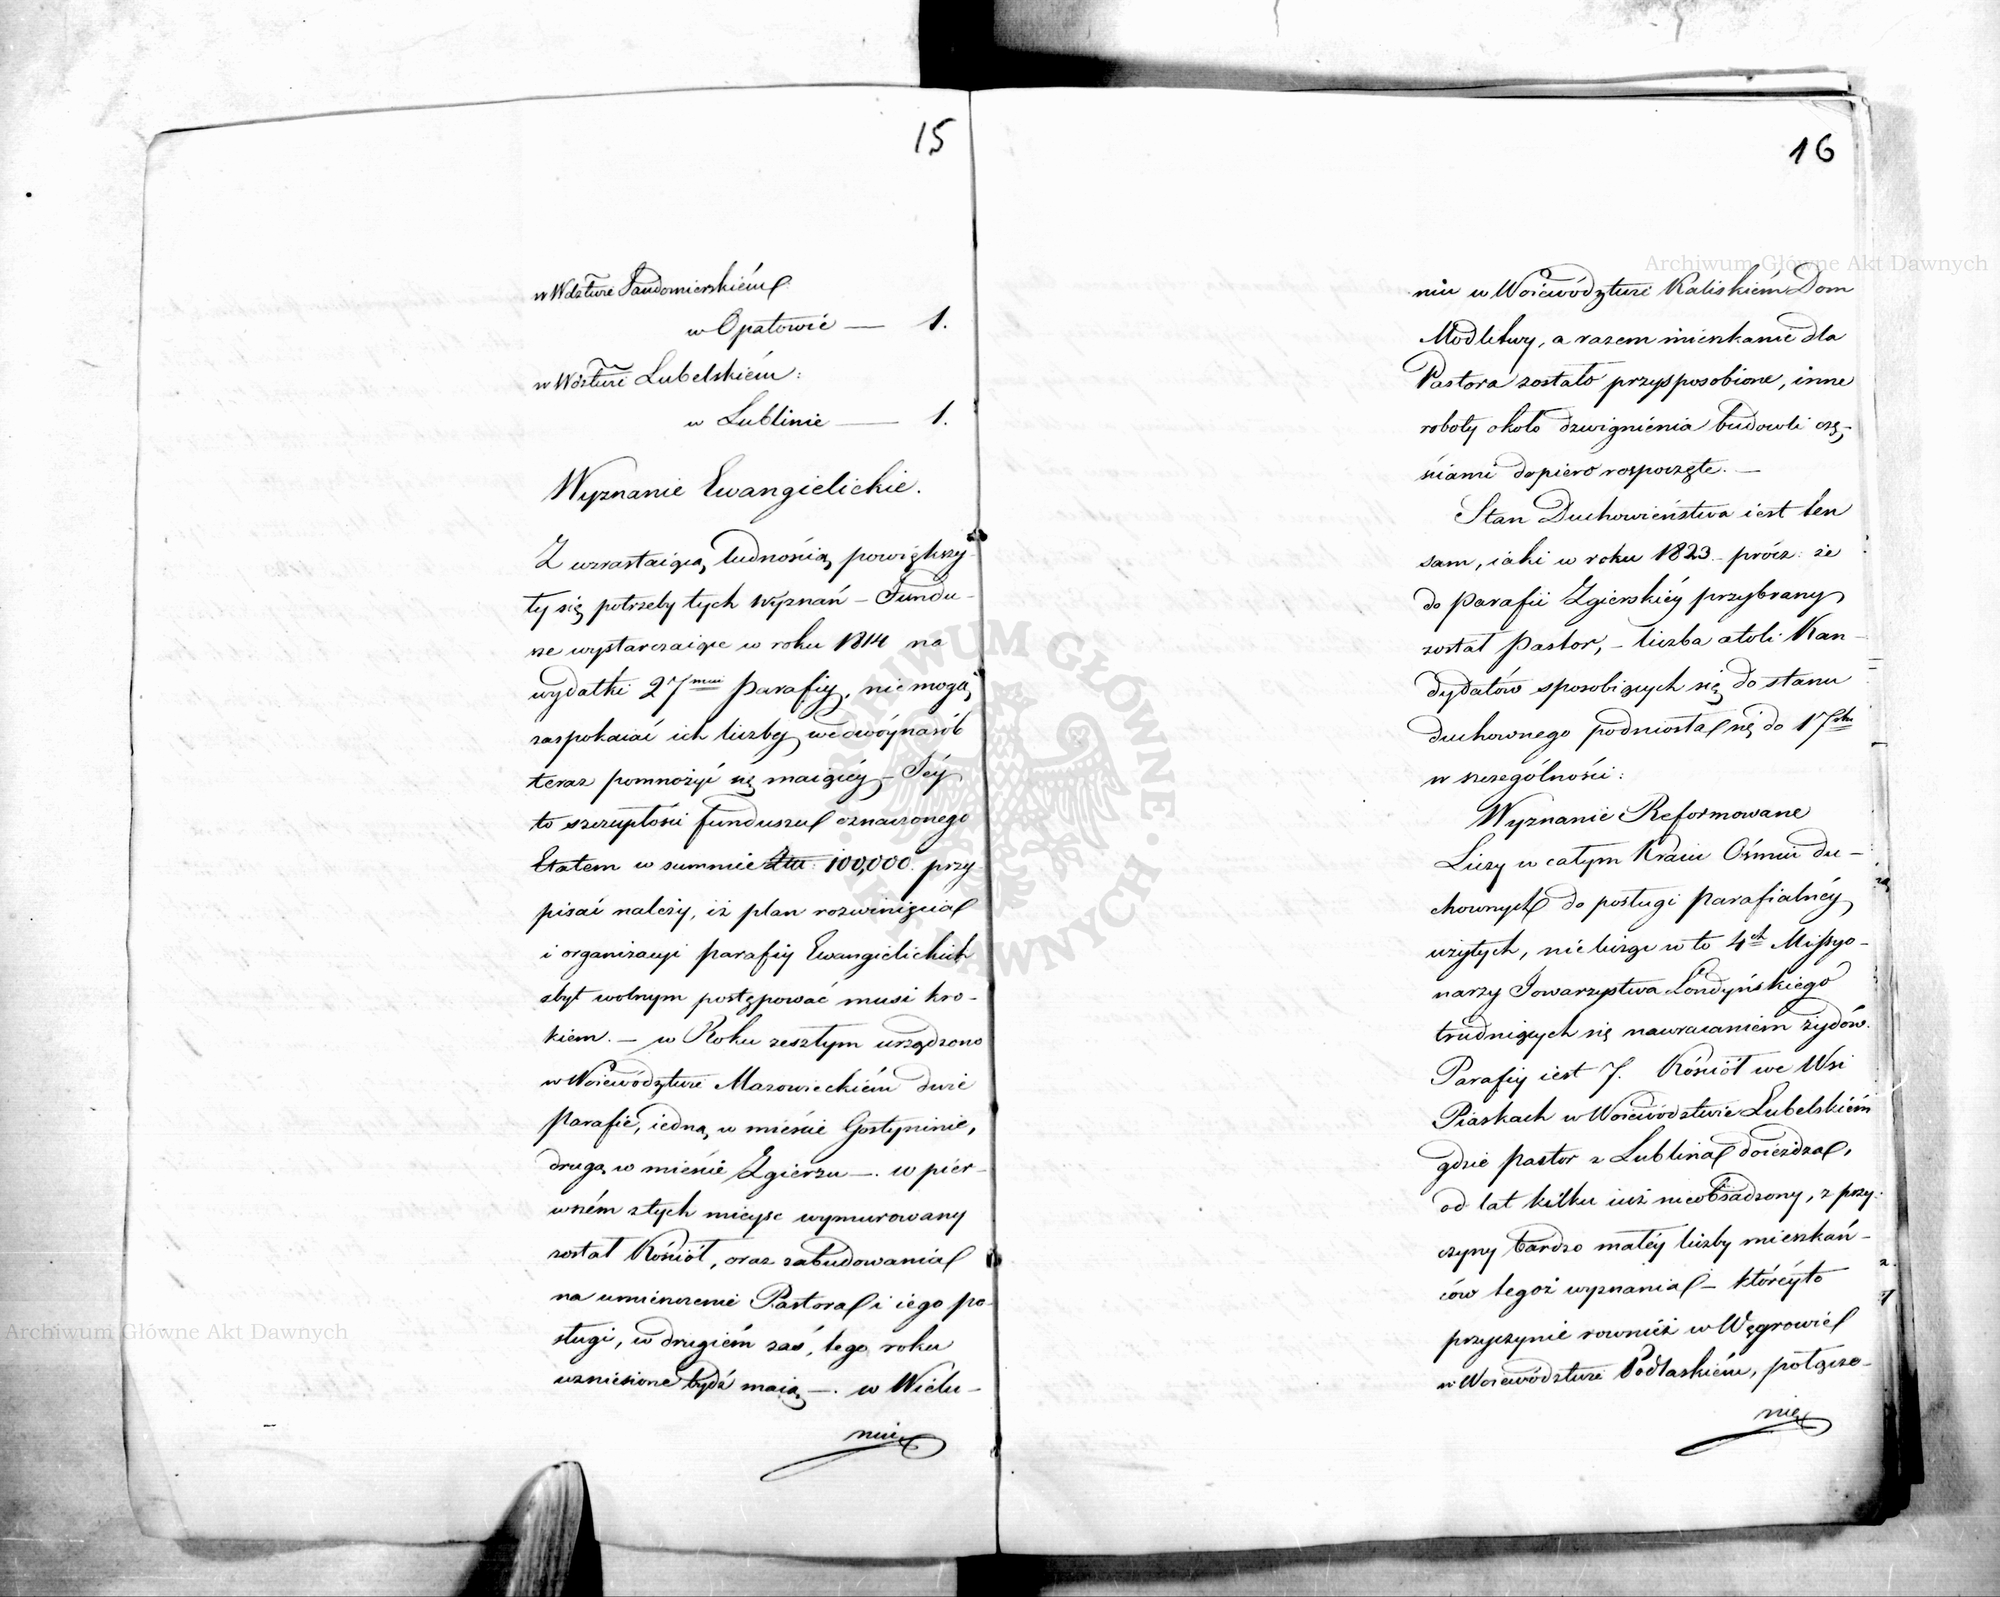 15
w Wdztwie Sandomierskiém
w Opatowie — 1.
w Wdztwie Lubelskiém:
w Lublinie — 1.
Wyznanie Ewangielickie.
Z wzrastaiącą ludnością powiększy-
ły się potrzeby tych wyznań — Fundu-
sze wystarczaiące w roku 1814 na
wydatki 27miu parafiy, nie mogą
zaspokaiać ich liczby we dwóynasób
teraz pomnożyć się maiącéy — Téy
to szczupłości funduszu oznaczonego
Etatem w summie Złt: 100,000. przy-
pisać należy, iż plan rozwinięcia
i organizacyi parafiy Ewangielickich
zbyt wolnym postępować musi kro-
kiem. — w Roku zeszłym urządzono
w Woiewództwie Mazowieckiém dwie
parafie, iedną w mieście Gostyninie,
drugą w mieście Zgierzu —. w pier-
wszém z tych mieysc wymurowany
został Kościół, oraz zabudowania
na umieszczenie Pastora i iego po-
sługi, w drugiém zaś, tego roku
wzniesione bydź maią —. w Wielu-
niu
16
niu w Woiewództwie Kaliskiém Dom
Modlitwy, a razem mieszkanie dla
Pastora zostało przysposobione, inne
roboty około dzwignienia budowli czę-
ściami dopiero rospoczęte. —
Stan Duchowieństwa iest ten
sam, iaki w roku 1823 prócz: że
do parafii Zgierskiéy przybrany
został pastor, — liczba atoli Kan-
dydatów sposobiących się do stanu
duchownego podniosła się do 17stu
w szczególności:
Wyznanie Reformowane
Liczy w całym Kraiu Ośmiu du-
chownych do posługi parafialnéy
użytych, nie licząc w to 4ch Missyo-
narzy Towarzystwa Londyńskiego
trudniących się nawracaniem żydów.
Parafiy iest 7. Kościół we Wsi
Piaskach w Woiewództwie Lubelskiém
gdzie pastor z Lublina doieżdza,
od lat kilku iuż nieobsadzony, z przy-
czyny bardzo małéy liczby mieszkań-
ców tegoż wyznania — któréyto
przyczynie rownież w Węgrowie
w Woiewództwie Podlaskiém, połącze-
nie
Archiwum Główne Akt Dawnych
Archiwum Główne Akt Dawnych
ARCHIWUM GŁÓWNE AKT DAWNYCH